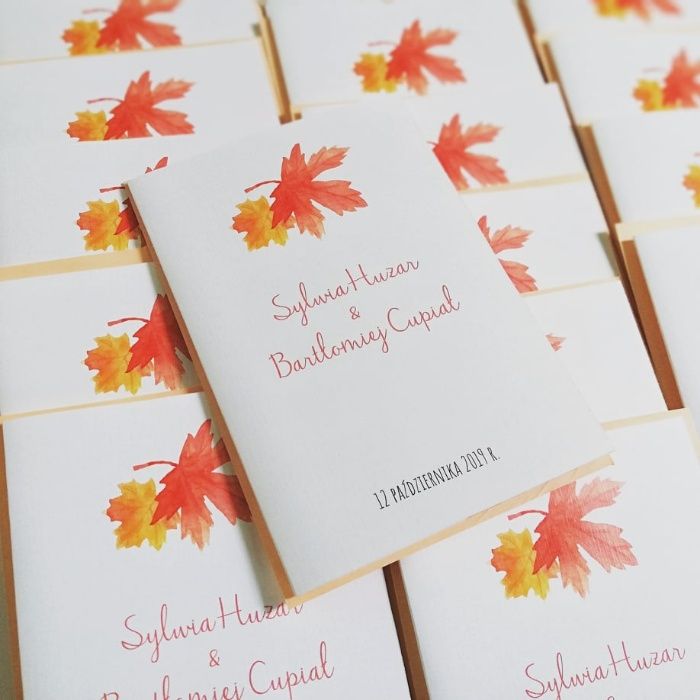 Sylwia Huzar
&
Bartłomiej Cupiał
12 PAŹDZIERNIKA 2019 R.
Sylwia Huzar
&
Bartłomiej Cupiał
Sylwia Huzar
&